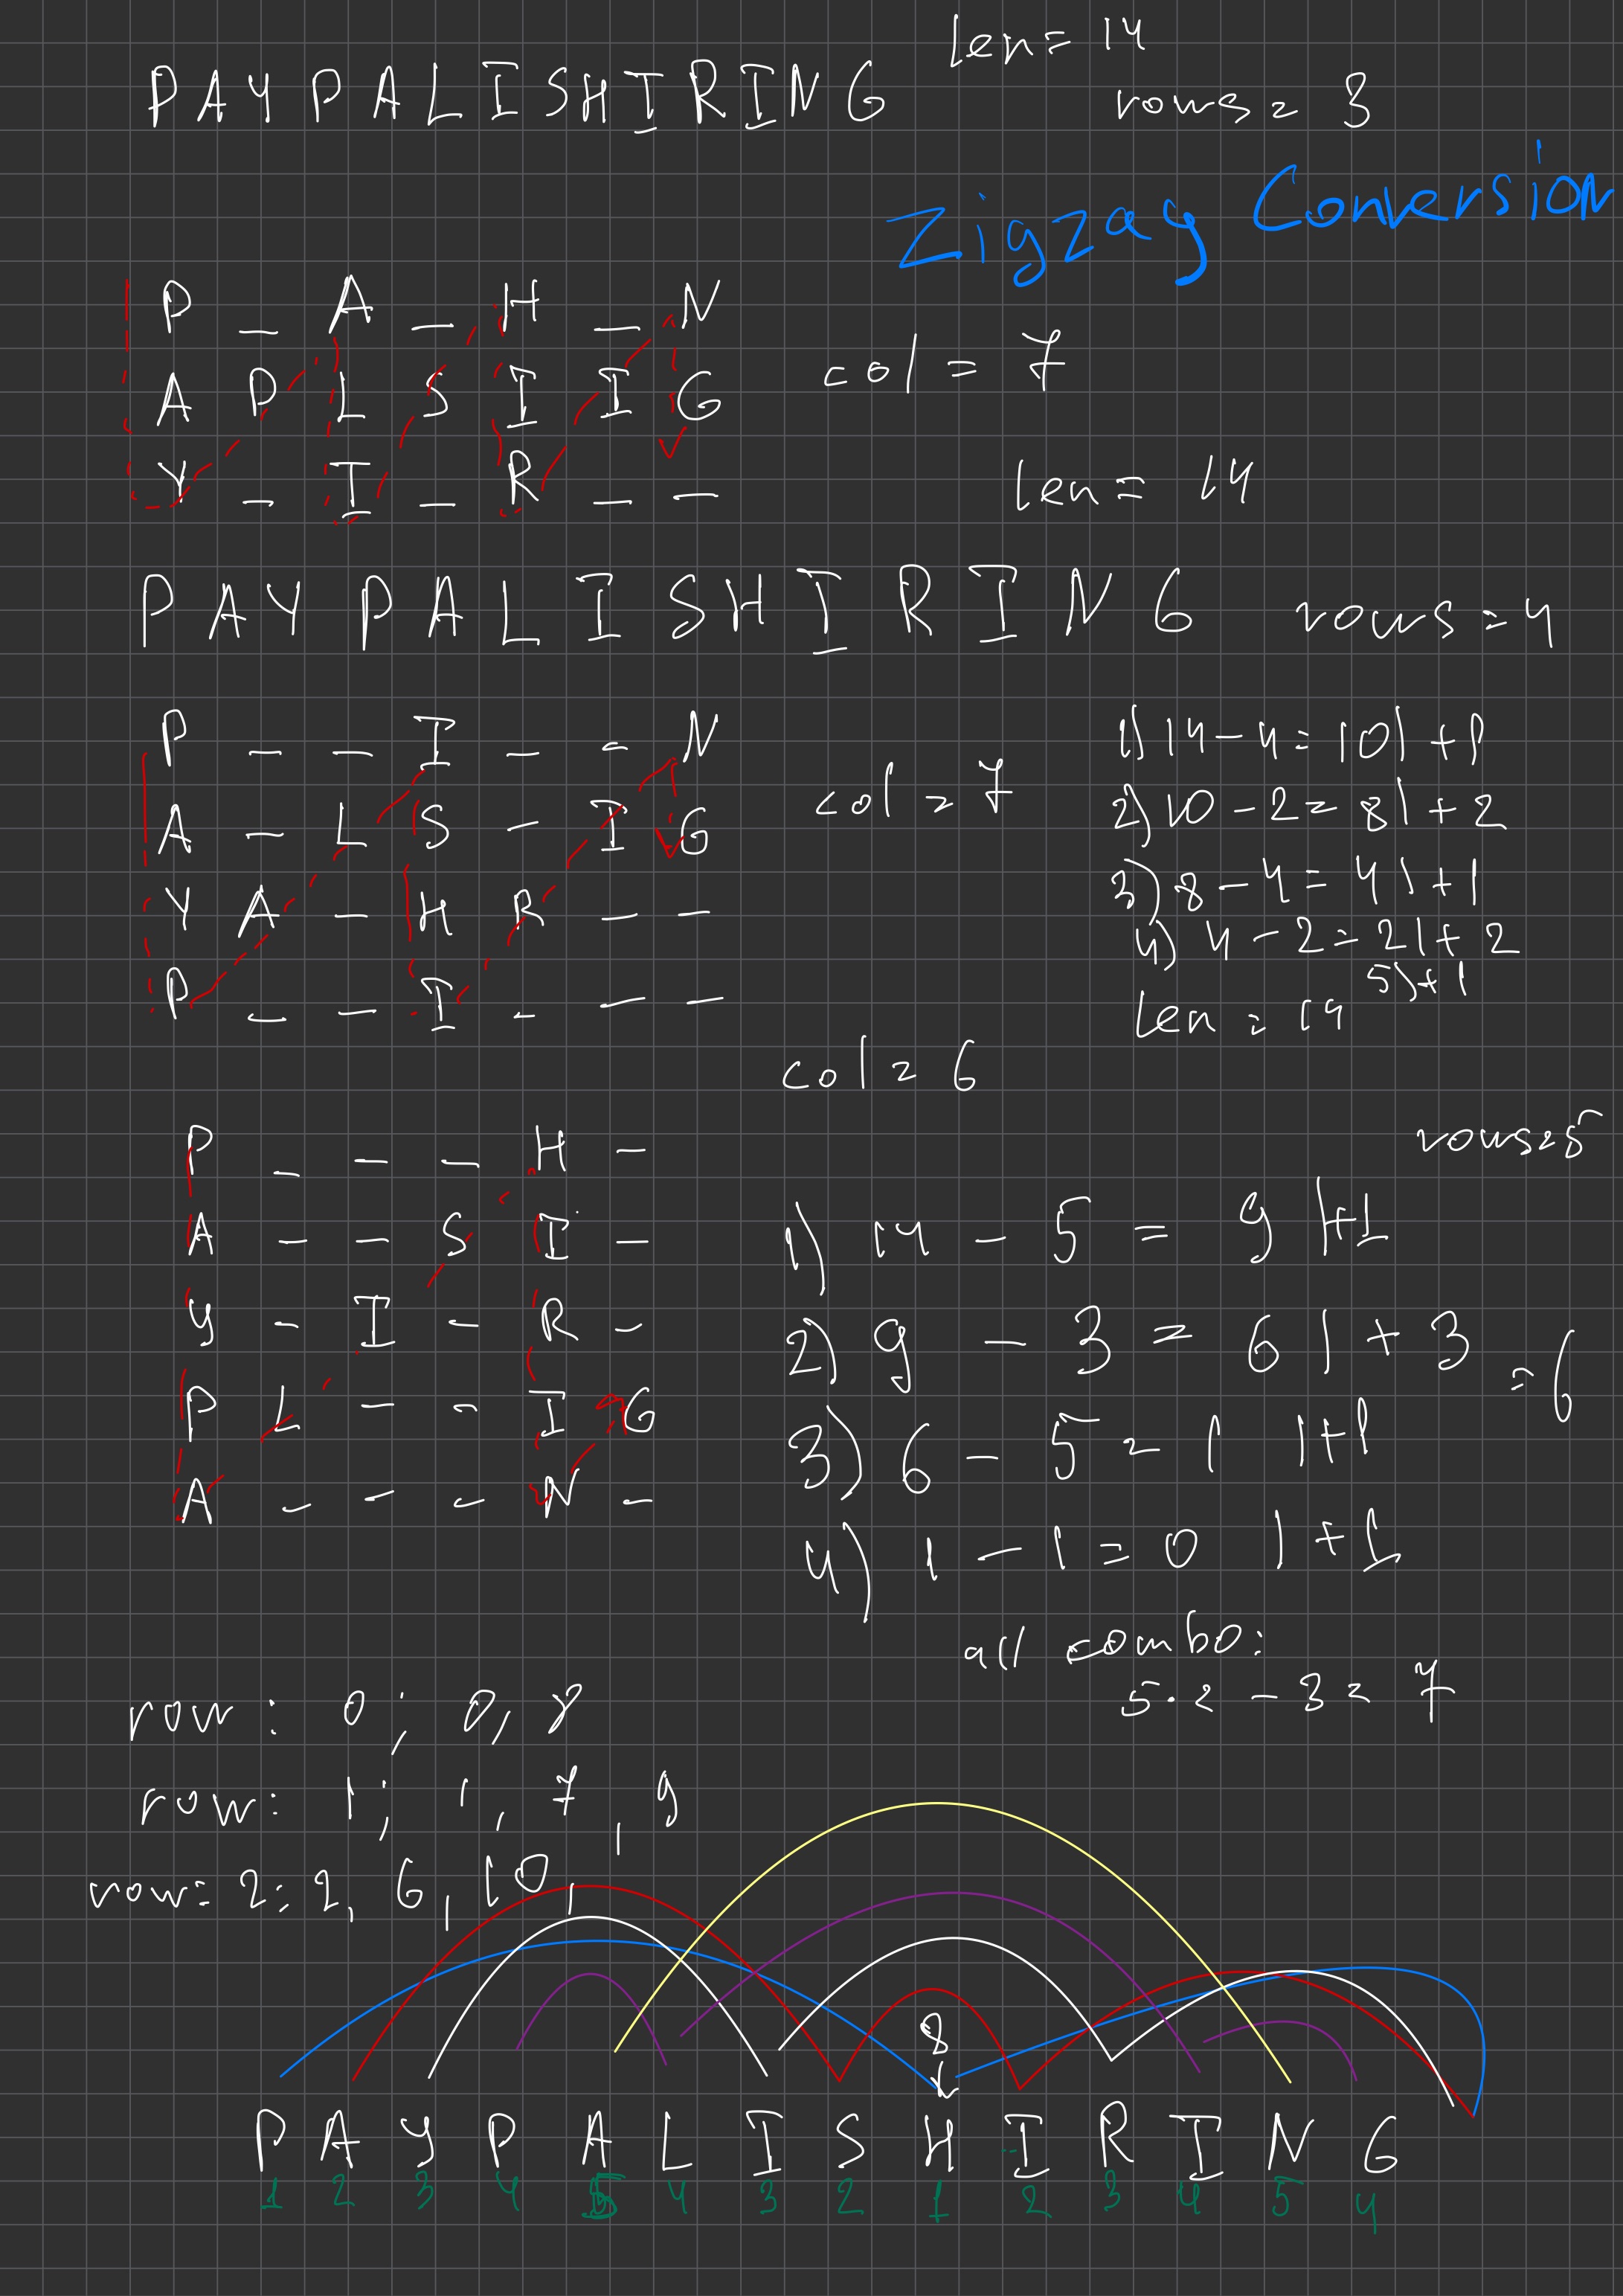 len = 14
PAYPALISHIRING
rows = 3
Zigzag Conversion
P _ A _ H _ N
A P L S I I G
Y _ I _ R _ _
col = 7
len = 14
PAYPALISHIRING rows = 4
P _ _ I _ _ N
A _ L S _ I G
Y A _ H R _ _
P _ _ I _ _ _
col = 7
1) 14 - 4 = 10 | + 1
2) 10 - 2 = 8 | + 2
3) 8 - 4 = 4 | + 1
4) 4 - 2 = 2 | + 2
5) + 1
len = 14
col = 6
rows = 5
P _ _ _ H _
A _ _ S I _
Y _ I _ R _
P L _ _ I G
A _ _ _ N _
1) 14 - 5 = 9 | +1
2) 9 - 3 = 6 | + 3
= 6
3) 6 - 5 = 1 | +1
4) 1 - 1 = 0 | +1
all combo:
5·2 - 3 = 7
row: 0; 0, 8
row: 1; 1, 7, 9
row: 2: 2, 6, 10,
8
PAYPALISHIRING
1 2 3 4 5 4 3 2 1 2 3 4 5 4